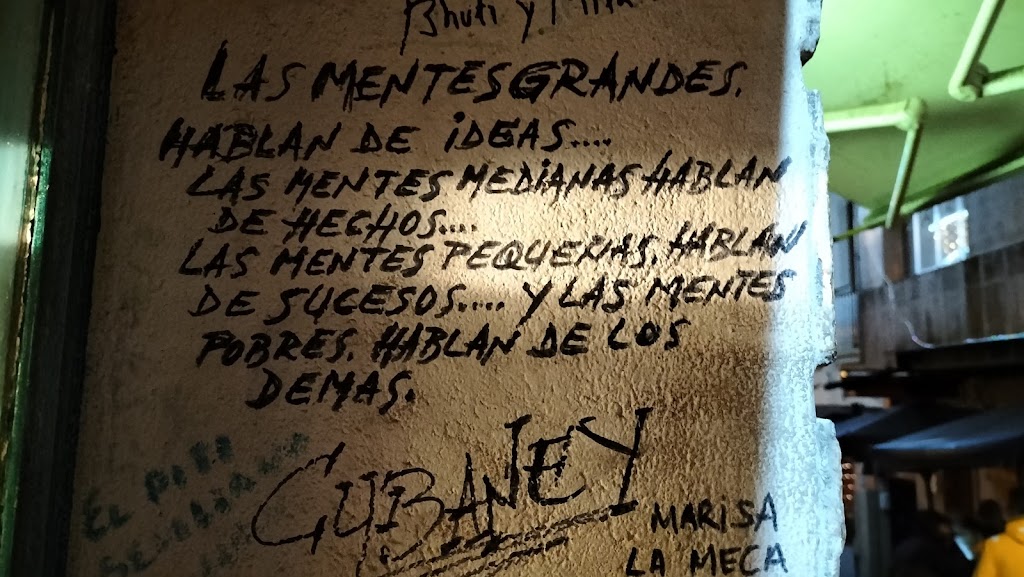 Bhuti y
LAS MENTES GRANDES.
HABLAN DE iDEAS....
LAS MENTES MEDiANAS HABLAN
DE HECHOS....
LAS MENTES PEQUEÑAS. HABLAN
DE SUCESOS..... Y LAS MENTES
POBRES. HABLAN DE LOS
DEMAS.
EL PiTi
CUBANEY
MARISA
LA MECA